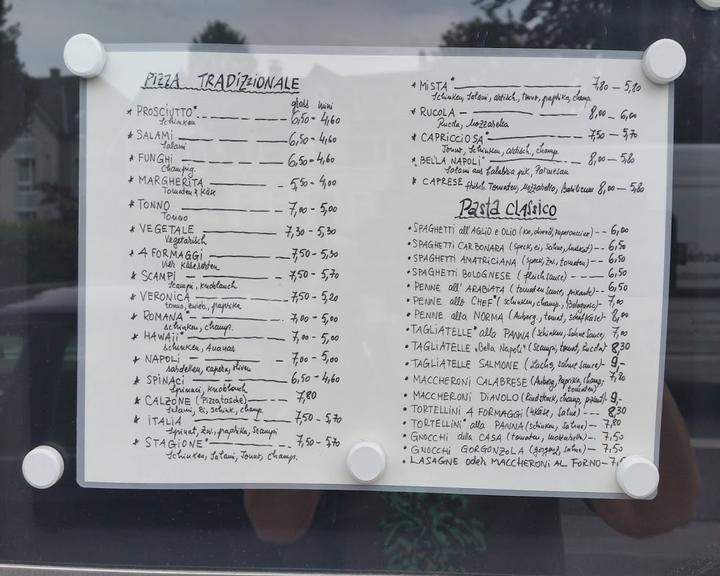 PIZZA TRADIZZIONALE
groß mini
* PROSCIUTTO* 6,50 - 4,60
Schinken
* SALAMI 6,50 - 4,60
Salami
* FUNGHI 6,50 - 4,60
Champig.
* MARGHERITA 5,50 - 4,00
Tomaten & Käse
* TONNO 7,00 - 5,00
Tonno
* VEGETALE 7,30 - 5,30
Vegetarisch
* 4 FORMAGGI 7,50 - 5,30
vier Käsesorten
* SCAMPI 7,50 - 5,70
Scampi, Knoblauch
* VERONICA 7,50 - 5,20
tonno, zwieb, paprika
* ROMANA* 7,00 - 5,00
schinken, champ.
* HAWAII* 7,00 - 5,00
schinken, Ananas
* NAPOLI 7,00 - 5,00
sardellen, kapern, oliven
* SPINACI 6,50 - 4,60
Spinaci, Knoblauch
* CALZONE (Pizzatasche) 7,80
Salami, Ei, schink, champ.
* ITALIA 7,50 - 5,70
Spinat, zw, paprika, Scampi
* STAGIONE* 7,50 - 5,70
Schinken, Salami, Tonno, champ.
* MISTA* 7,80 - 5,80
Schinken, Salami, artisch, tonno, paprika, champ
* RUCOLA 8,00 - 6,00
Rucola, Mozzabella
* CAPRICCIOSA* 7,50 - 5,70
Tonno, Schinken, artisch., champ
* BELLA NAPOLI* 8,00 - 5,80
Salami aus Calabria pik, Parmesan
* CAPRESE frisch Tomaten, Mozzabella, Basilicum 8,00 - 5,80
Pasta CLASSICO
• SPAGHETTI all'AGLIO e OLIO -- 6,00
• SPAGHETTI CARBONARA (speck, ei, sahne, muskat) -- 6,50
• SPAGHETTI AMATRICIANA (speck, zwi, tomaten) -- 6,50
• SPAGHETTI BOLOGNESE (fleischsauce) -- 6,50
• PENNE all'ARABIATA (tomaten sauce, pikante) -- 6,50
• PENNE alla CHEF* (schinken, champ., Bolognese) - 7,00
• PENNE alla NORMA (Auberg., tomat, schafkäse) - 8,00
• TAGLIATELLE* alla PANNA (Schinken, Sahne Sauce) 7,00
• TAGLIATELLE "Bella Napoli" (Scampi, tomat, Rucola) 8,30
• TAGLIATELLE SALMONE (Lachs, sahne sauce) - 9,-
• MACCHERONI CALABRESE (Auberg, Paprika, champ, tomaten) 7,20
• MACCHERONI DIAVOLO 9,-
• TORTELLINI 4 FORMAGGI (4 Käse, Sahne) --- 8,30
• TORTELLINI* alla PANNA (schinken, sahne) -- 7,80
• GNOCCHI della CASA (tomaten, mozzabella) -- 7,50
• GNOCCHI GORGONZOLA (gorgonz, sahne) -- 7,50
• LASAGNE oder MACCHERONI AL FORNO -